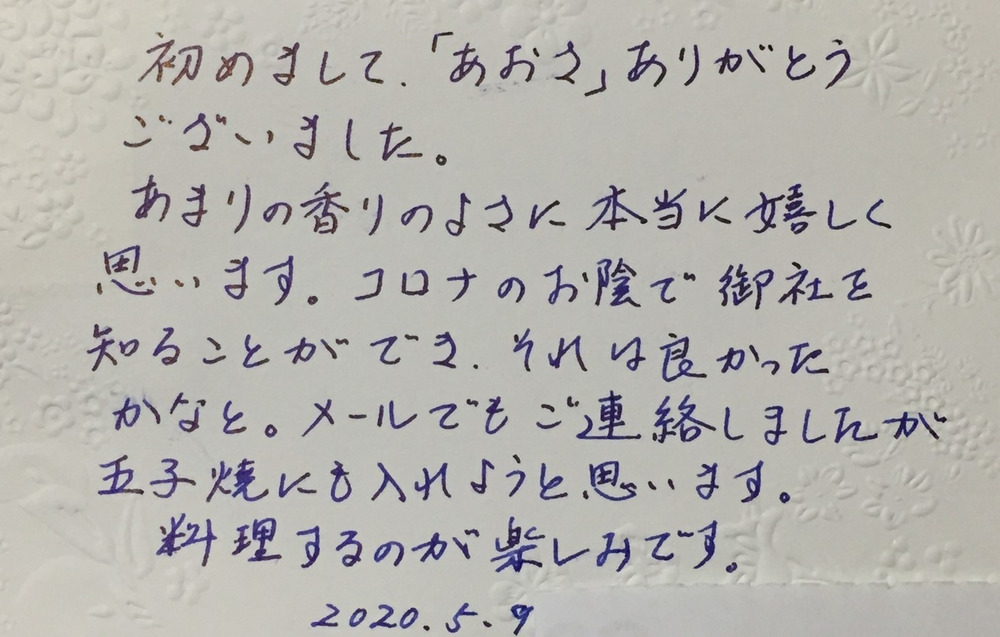 初めまして、「あおさ」ありがとう
ございました。
あまりの香りのよさに本当に嬉しく
思います。コロナのお陰で御社を
知ることができ、それは良かった
かなと。メールでもご連絡しましたが
玉子焼にも入れようと思います。
料理するのが楽しみです。
2020.5.9